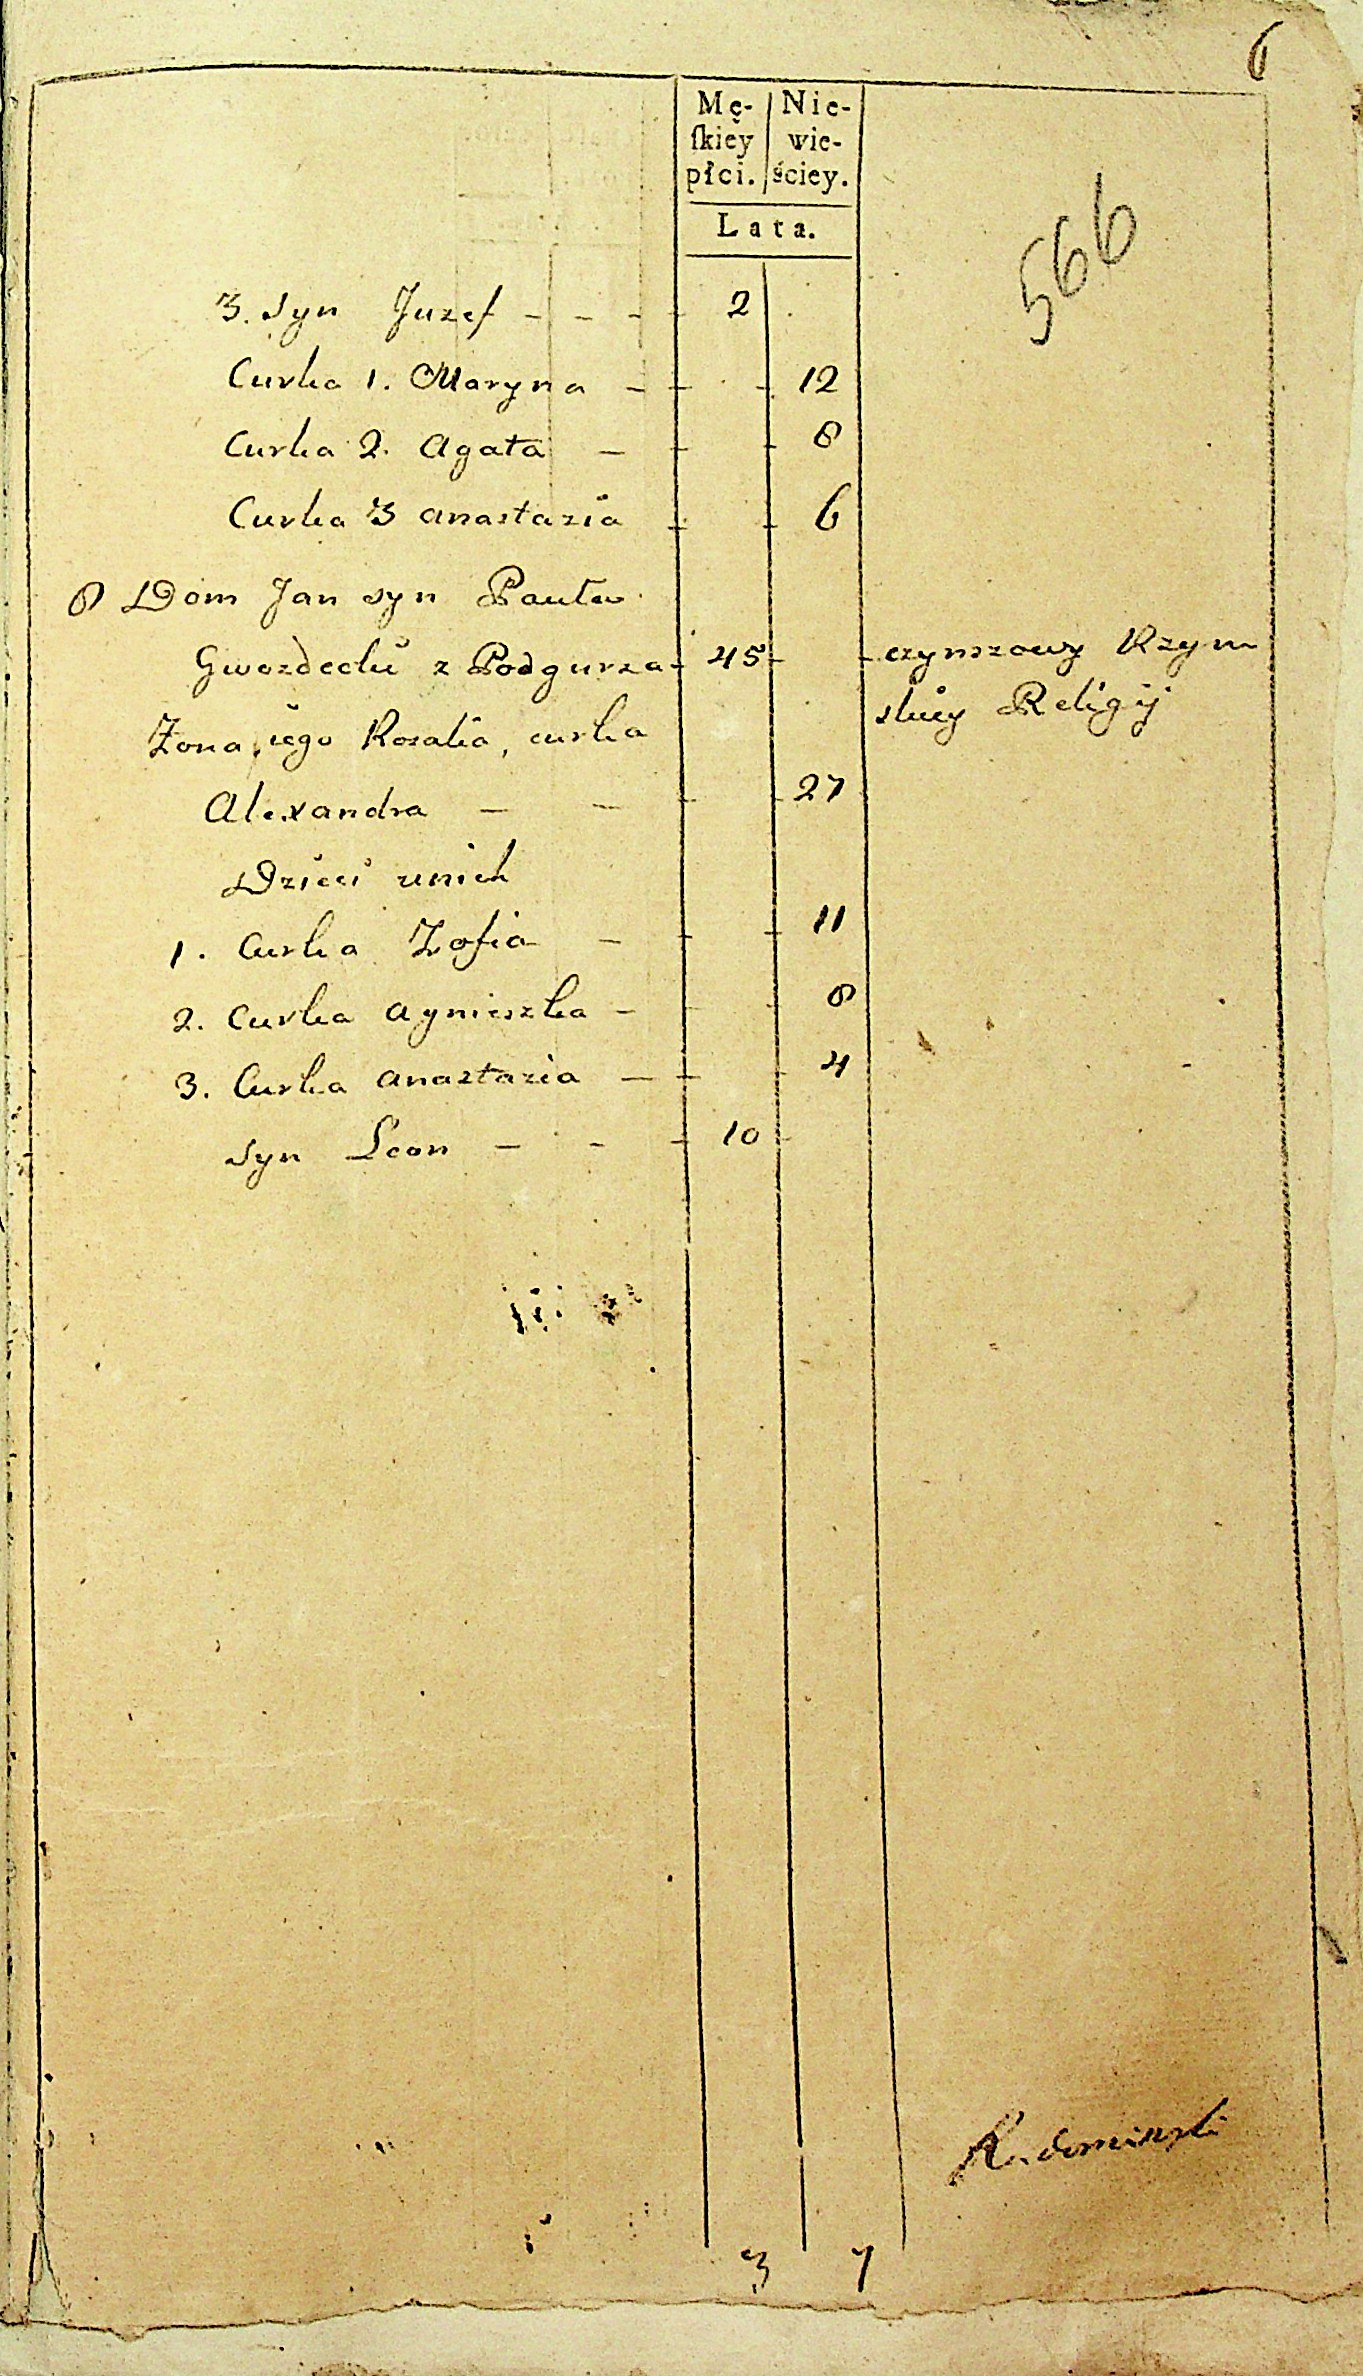 6
Mę- Nie-
ſkiey wie-
płci. ściey.
Lata.
566
3. syn Juzef - - - - 2
Curka 1. Maryna - - - 12
Curka 2. Agata - - - 8
Curka 3 Anastazia - - 6
8 Dom Jan syn Pawła
Gwozdecki z Podgurza - 45 - - czynszowy Rzym
skiey Religij
Zona iego Rozalia, curka
Alexandra - - - - 27
Dzieci unich
1. Curka Zofia - - - 11
2. Curka Agnieszka - 8
3. Curka Anastazia - - - 4
syn Leon - - - 10 -
3 7